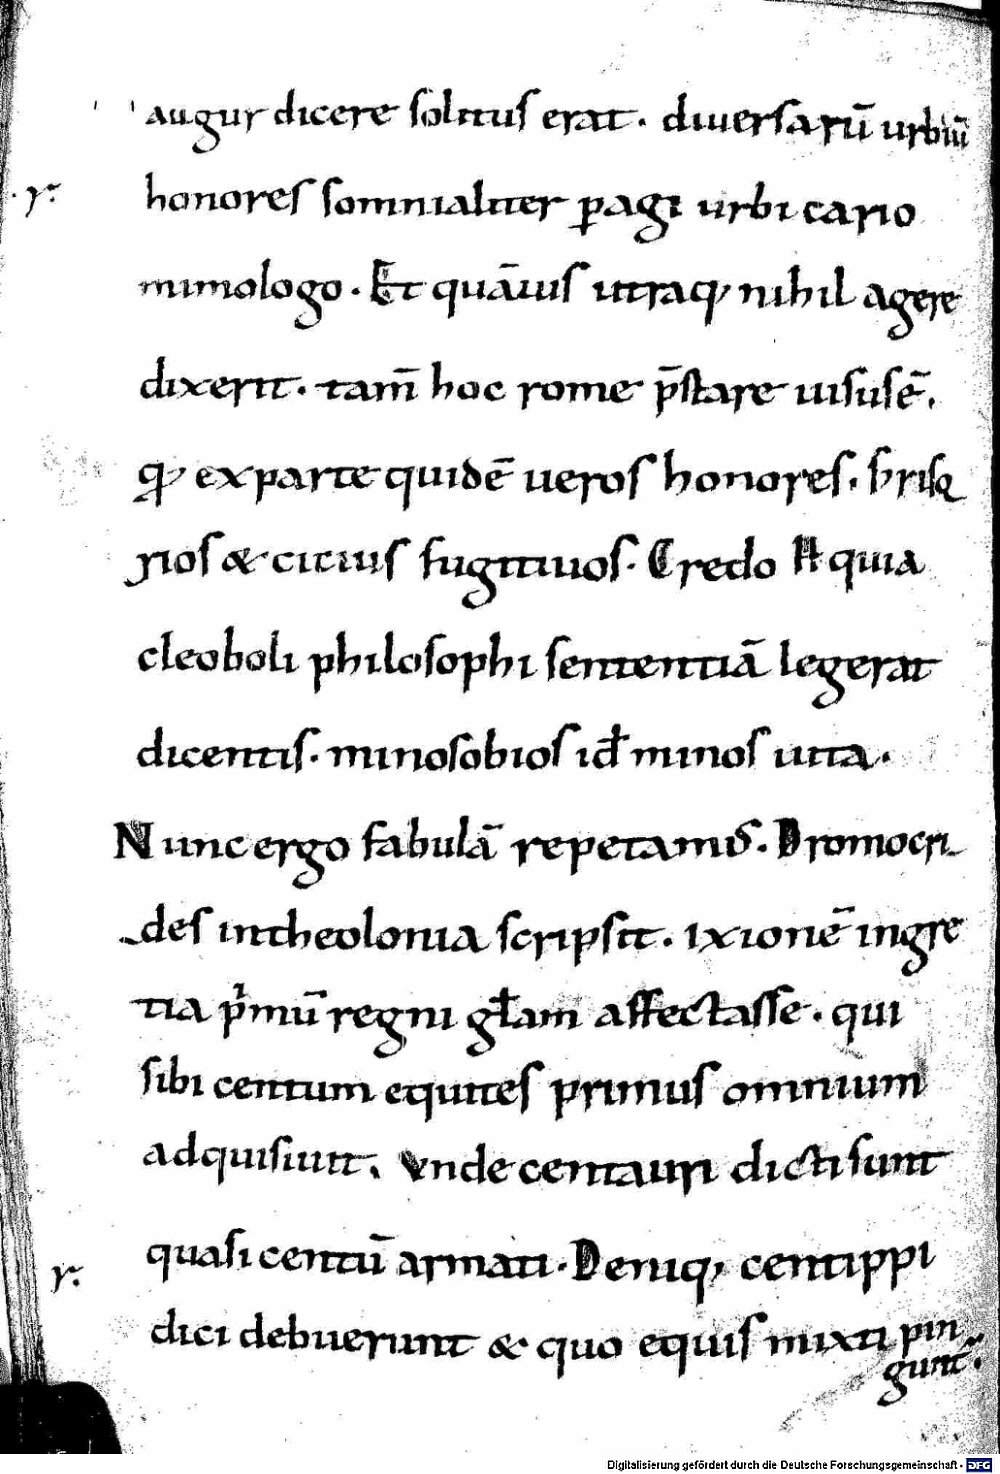 augur dicere solitus erat. diuersarū urbiū
r̄.
honores somnialiter ꝑagi urbicario
mimologo. Et quāuis utraq; nihil agere
dixerit. tam̄ hoc rome p̄stare uisusē.
ꝙ exparte quidē ueros honores.
rios & citius fugitiuos. Credo H quia
cleoboli philosophi sententiā legerat
dicentis. minosobios id̄ minos uita.
Nunc ergo fabulā repetamus. Dromocri-
-des intheolonia scripsit. ixionē ingre
tia p̄mū regni gł̄am affectasse. qui
sibi centum equites primus omnium
adquisiuit. Vnde centauri dicti sunt
quasi centū armati. Deniq; centippi
r̄.
dici debuerunt & quo equis mixti pin
gunt̄.
Digitalisierung gefördert durch die Deutsche Forschungsgemeinschaft - DFG